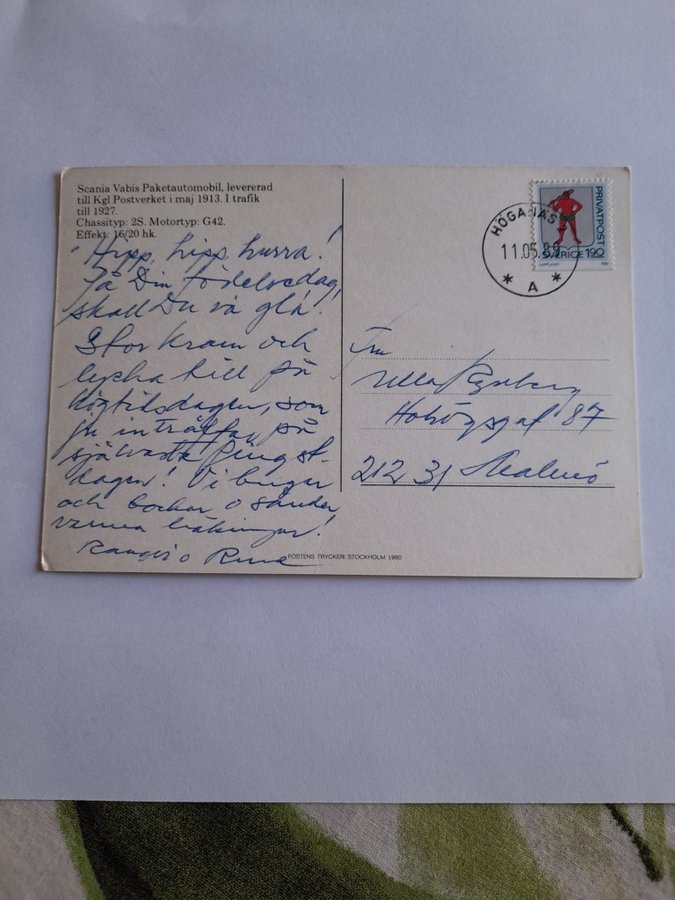 Scania Vabis Paketautomobil, levererad
till Kgl Postverket i maj 1913. I trafik
till 1927.
Chassityp: 2S. Motortyp: G42.
Effekt: 16/20 hk.
"Hipp, hipp hurra!
På Din födelsedag,
skall Du va glá.
Stor kram och
lycka till på
högtidsdagen, som
ju inträffar på
självaste Pingst-
dagen! Vi bugar
och bockar o sänder
varma hälsningar!
o Rune
HÖGANÄS
11.05.89
* A *
PRIVATPOST
SVERIGE 190
LAPPLAND
Fru
Ulla
87
212 31 Malmö
POSTENS TRYCKERI STOCKHOLM 1980